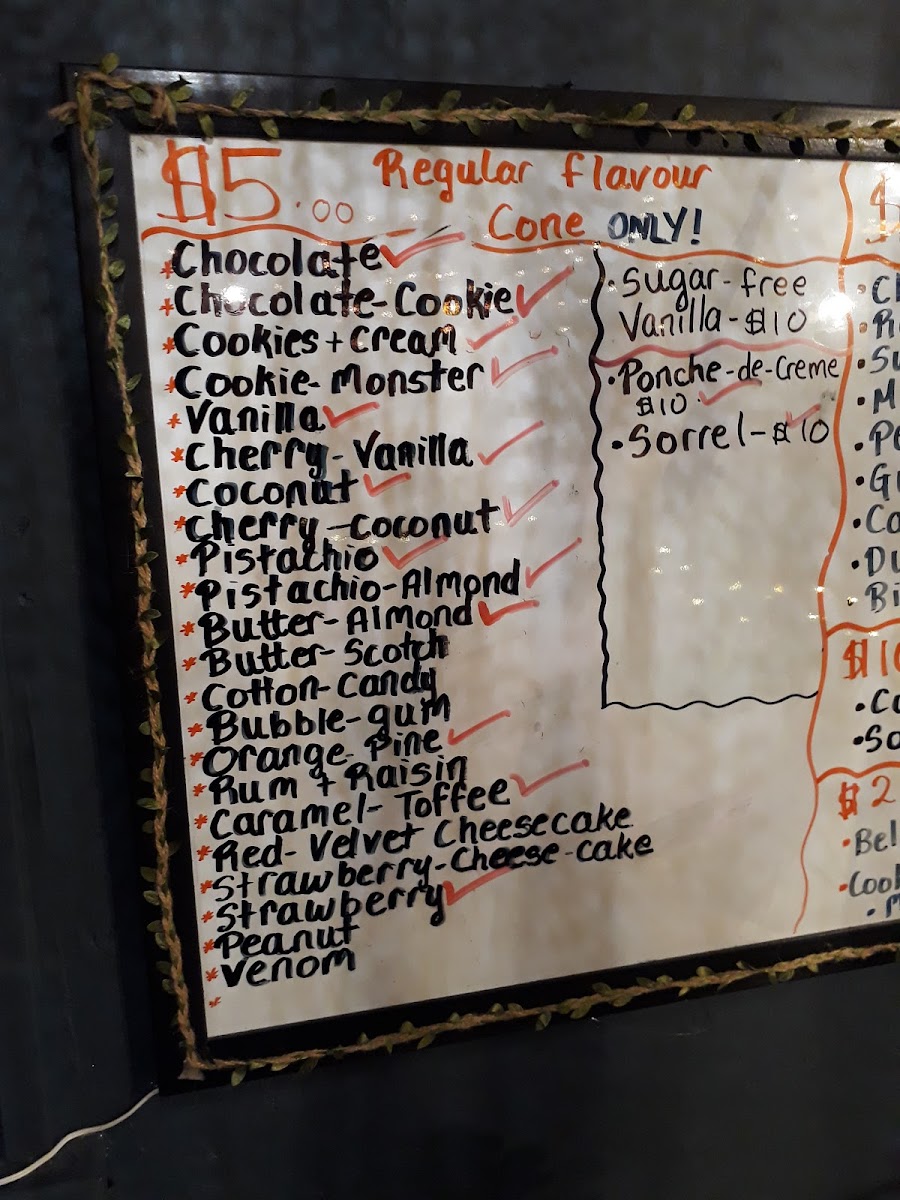 $5.00 Regular flavour
Cone ONLY!
*Chocolate ✓
*Chocolate-Cookie ✓
*Cookies + cream ✓
*Cookie-Monster ✓
*Vanilla ✓
*Cherry-Vanilla ✓
*Coconut ✓
*cherry-coconut ✓
*Pistachio ✓
*Pistachio-Almond ✓
*Butter-Almond ✓
*Butter-Scotch
*Cotton-Candy
*Bubble-gum
*Orange-Pine ✓
*Rum + Raisin
*Caramel-Toffee ✓
*Red-Velvet Cheesecake
*Strawberry-Cheese-cake
*Strawberry ✓
*Peanut
*Venom
*
•Sugar-free
Vanilla-$10
•Ponche-de-Creme
$10. ✓
•Sorrel-$10 ✓
$10
$2